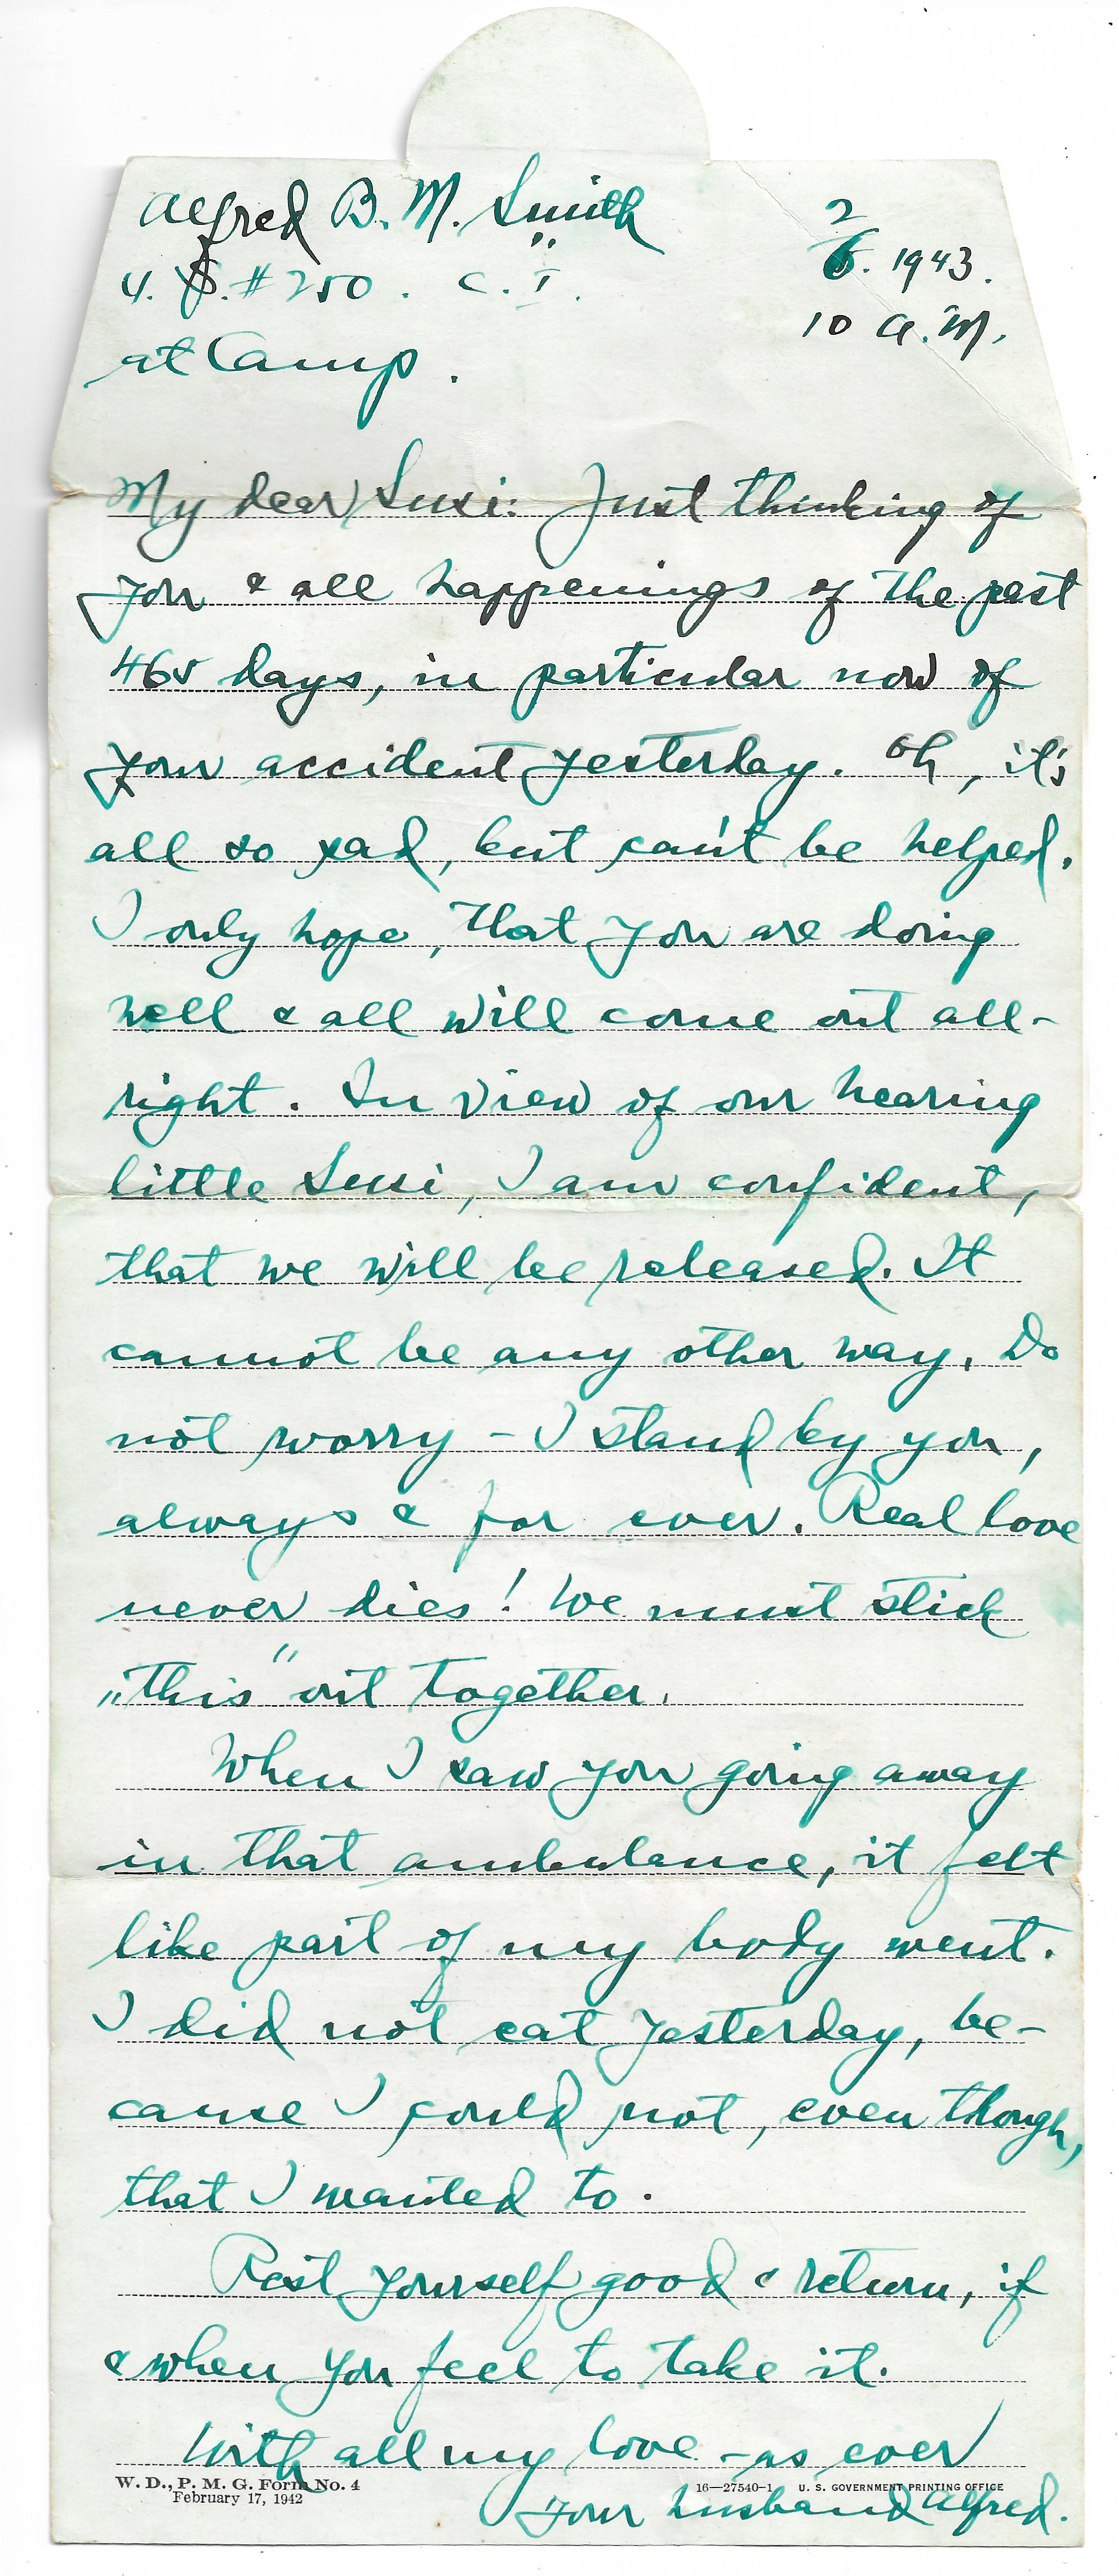 Alfred B. M. Smith
2/6. 1943.
4. S. #250. C. I.
10 A. M.
at Camp.
My dear Susi: Just thinking of
you & all happenings of the past
465 days, in particular now of
your accident yesterday. Oh, it's
all so sad, but can't be helped.
I only hope, that you are doing
well & all will come out all-
right. In view of our hearing
little Susi, I am confident,
that we will be released. It
cannot be any other way. Do
not worry - I stand by you,
always & for ever. Real love
never dies! We must stick
„this" out together.
When I saw you going away
in that ambulance, it felt
like part of my body went.
I did not eat yesterday, be-
cause I could not, even though,
that I wanted to.
Rest yourself good & return, if
& when you feel to take it.
With all my love - as ever
W. D., P. M. G. Form No. 4
February 17, 1942
16—27540-1 U. S. GOVERNMENT PRINTING OFFICE
your husband Alfred.